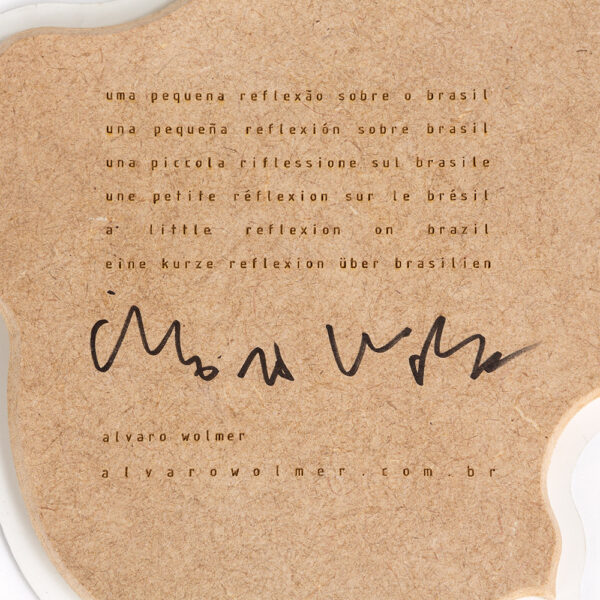 uma pequena reflexão sobre o brasil
una pequeña reflexión sobre brasil
una piccola riflessione sul brasile
une petite réflexion sur le brésil
a little reflexion on brazil
eine kurze reflexion über brasilien
alvaro wolmer
alvarowolmer.com.br